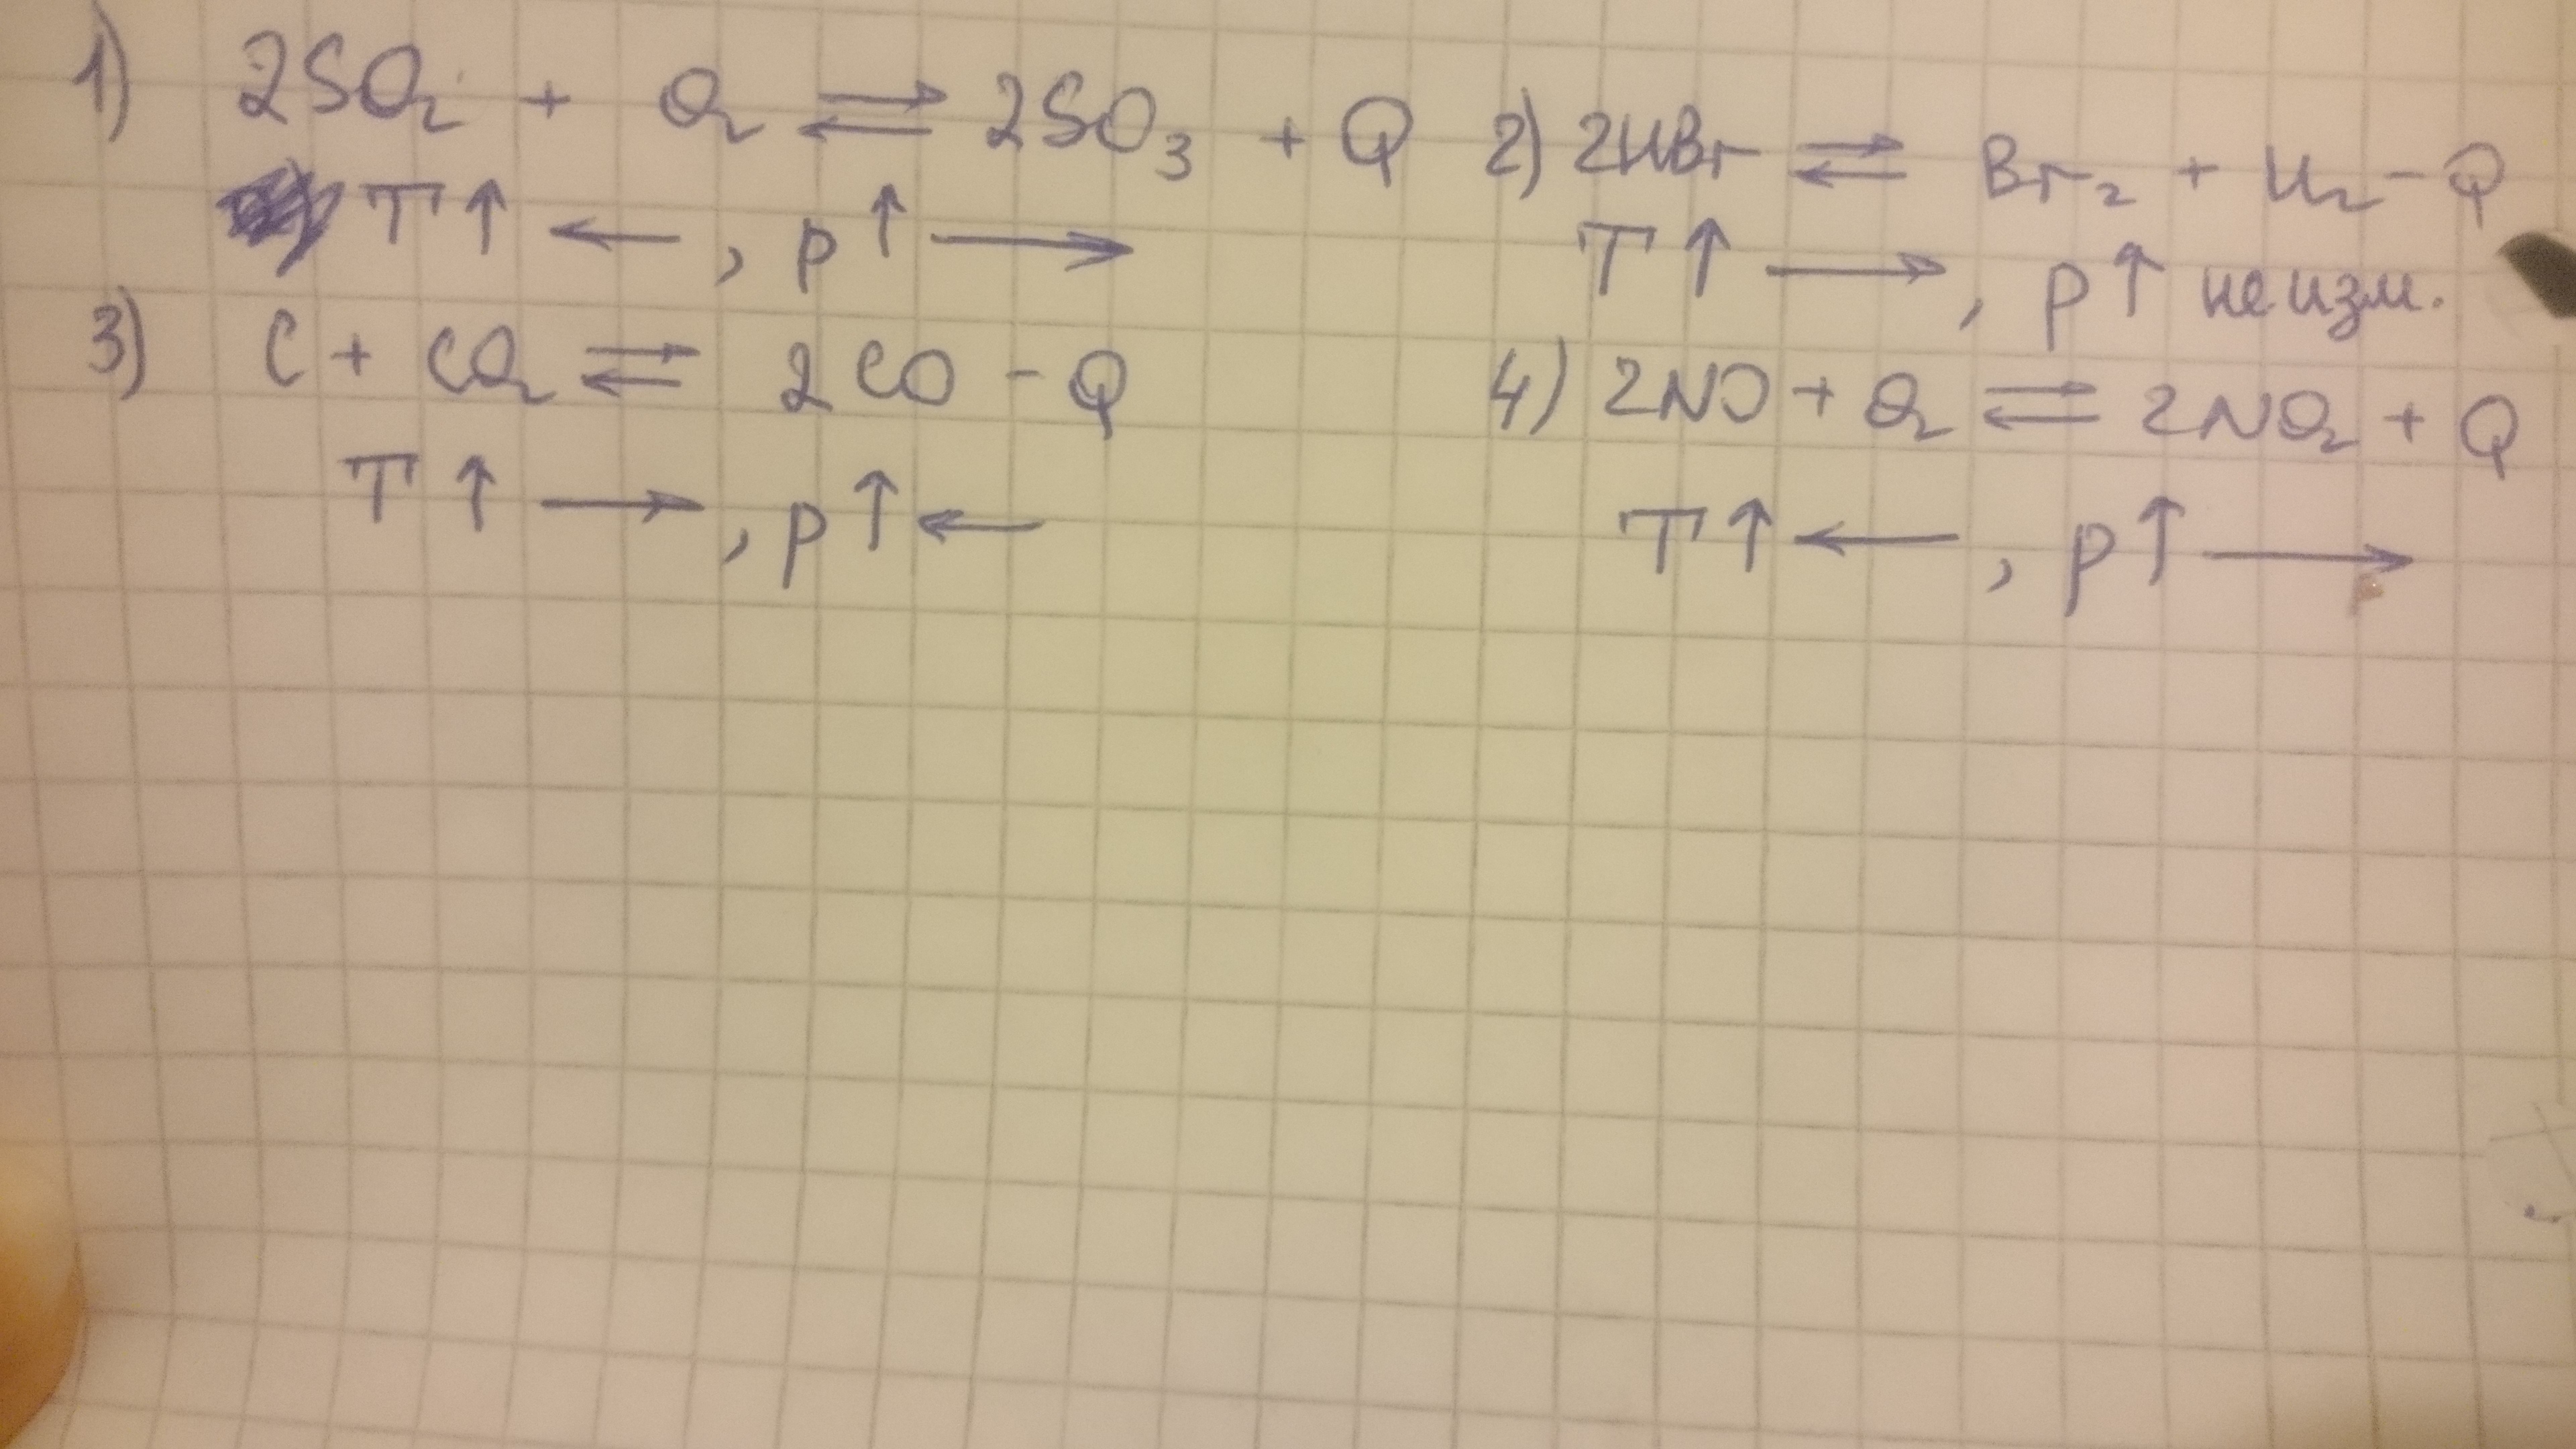 1) 2SO₂ + O₂ ⇄ 2SO₃ + Q
T↑ ←, p↑ →
2) 2HBr ⇄ Br₂ + H₂ - Q
T↑ →, p↑ не изм.
3) C + CO₂ ⇄ 2CO - Q
T↑ →, p↑ ←
4) 2NO + O₂ ⇄ 2NO₂ + Q
T↑ ←, p↑ →